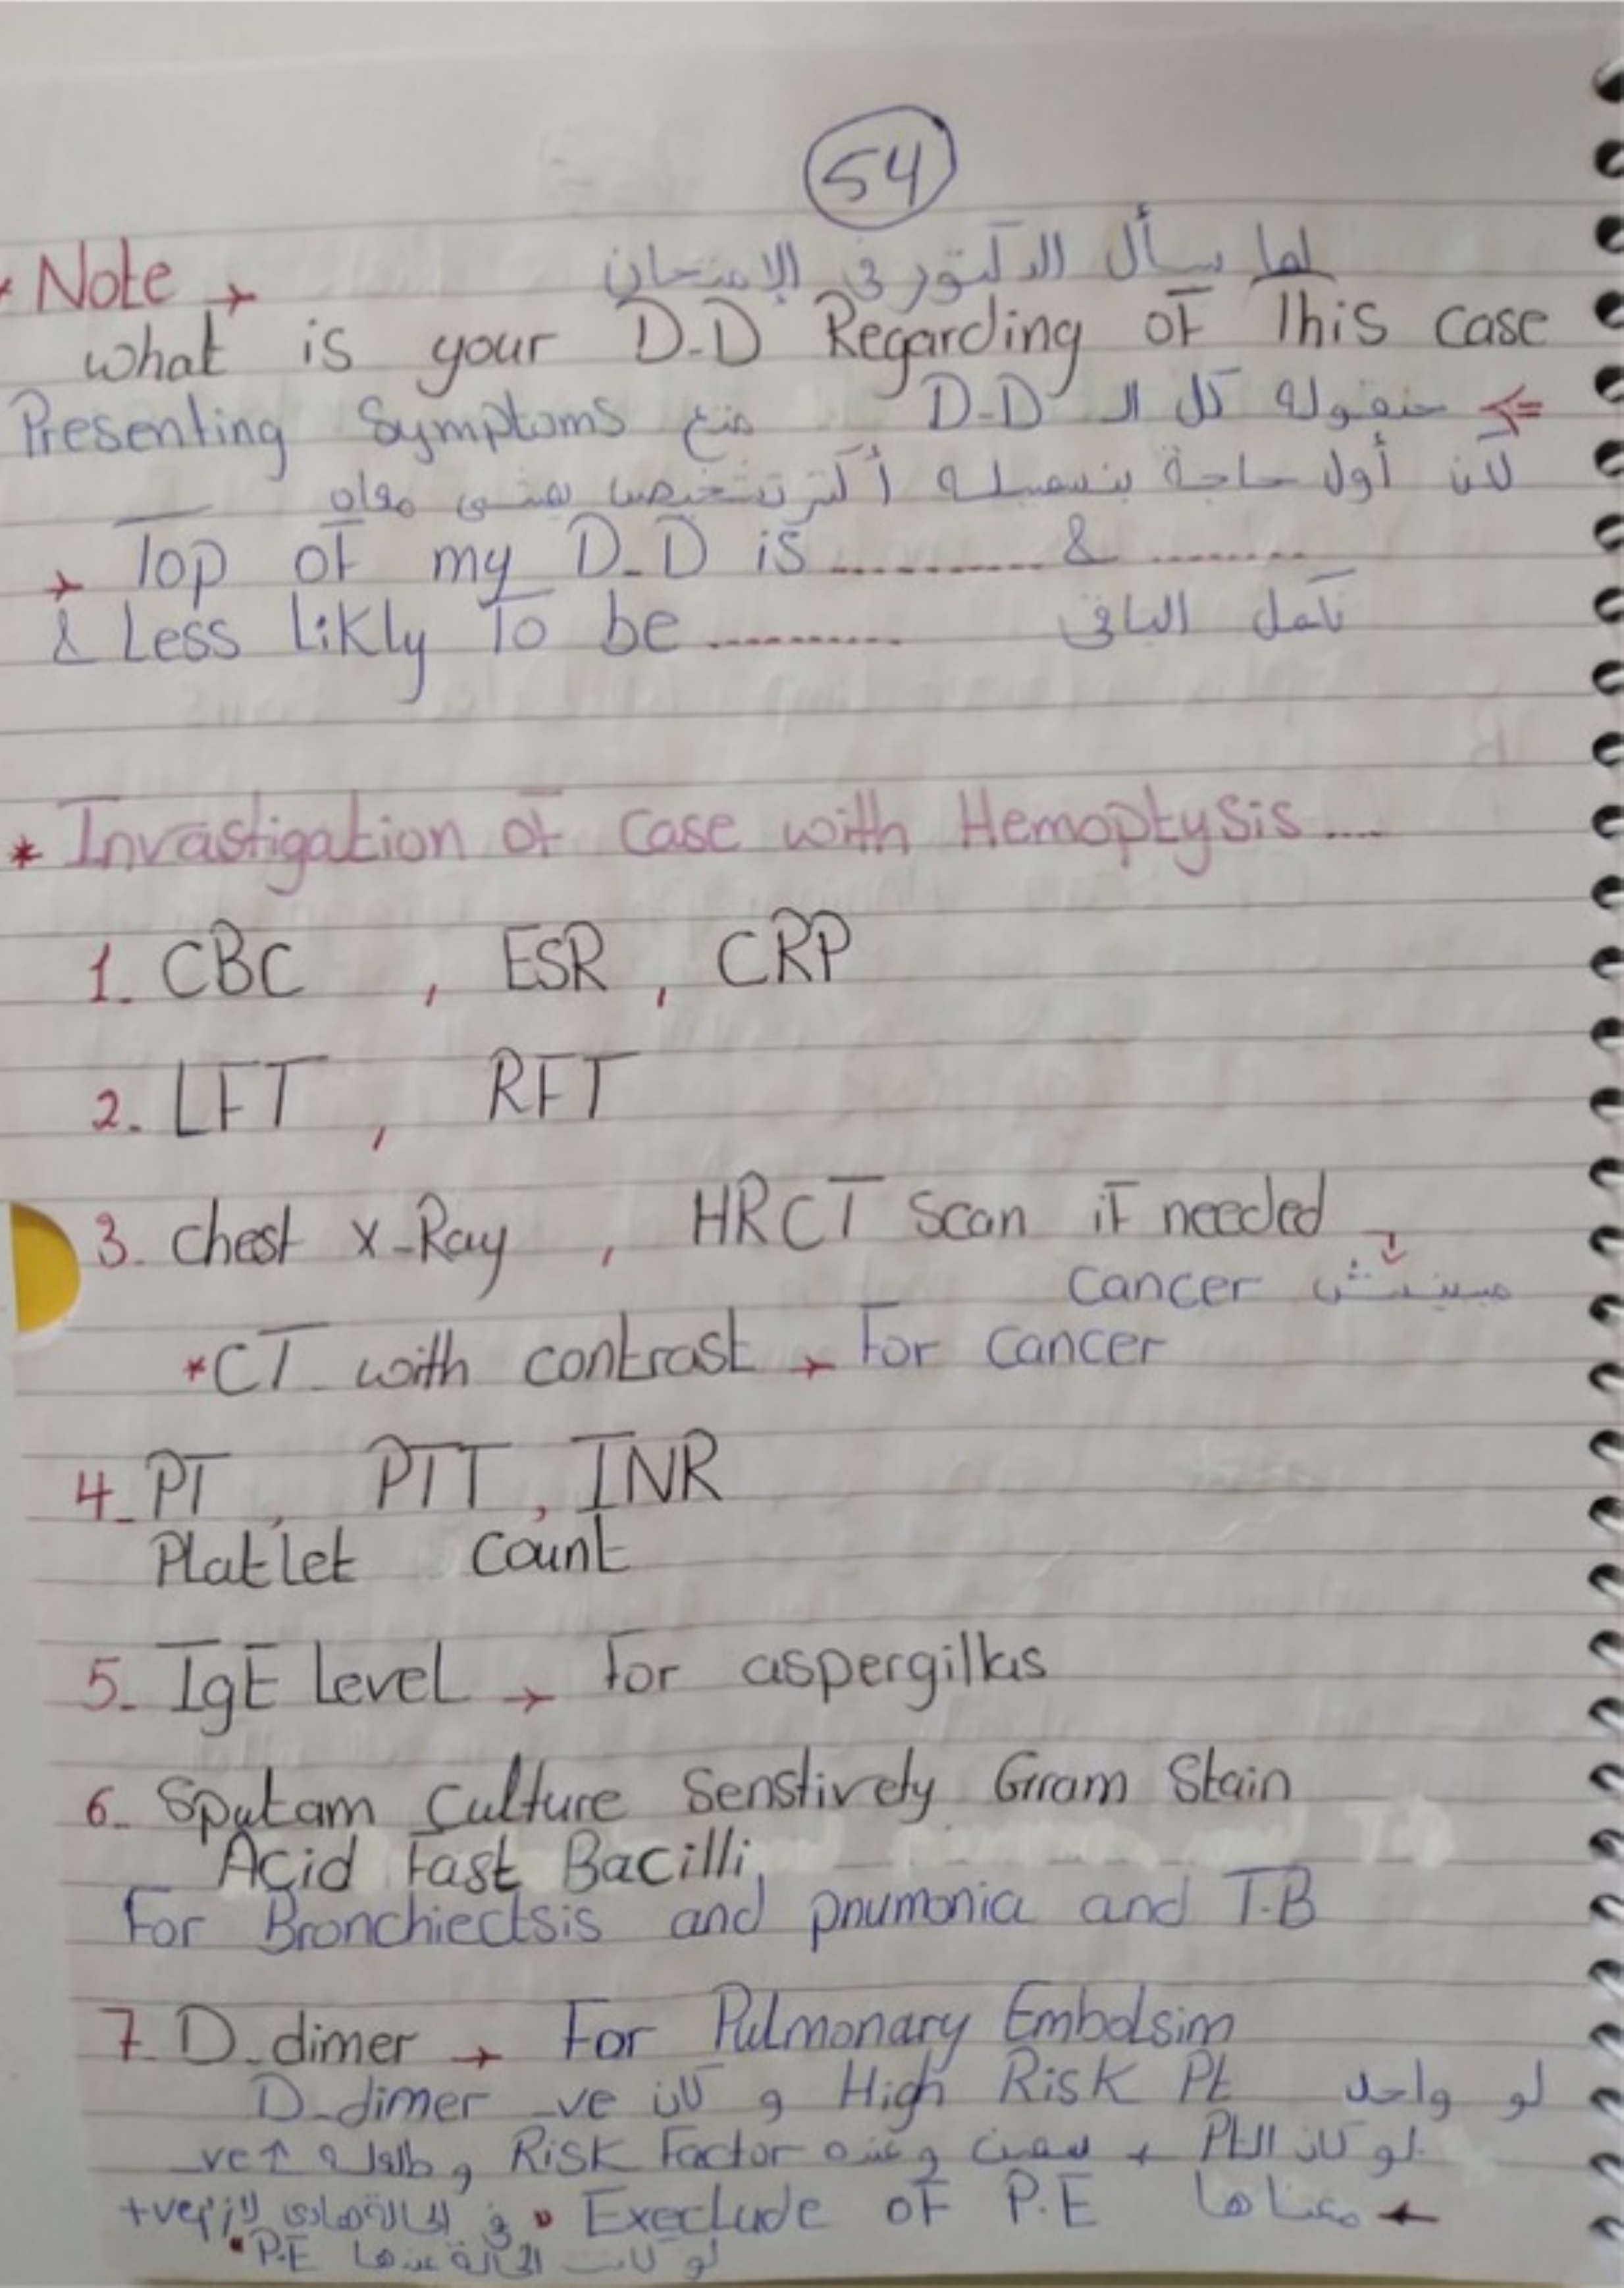 54
Note → لما يسأل الدكتور في الإمتحان
what is your D-D Regarding of This case
⇐ حنقوله كل الـ D-D متع Presenting Symptoms
لكن أول حاجة بنسميله أكثر تشخيص يمشى معاه
→ Top of my D-D is ........... & ........
& Less likly To be .......... نكمل الباقي
* Invastigation of case with Hemoptysis ....
1. CBC , ESR , CRP
2. LFT , RFT
3. chest x-Ray , HRCT Scan if needed
مبينش cancer
*CT with contrast → For cancer
4- PT , PTT , INR
Platlet count
5- IgE level → For aspergillus
6- Sputam Culture Senstively Gram Stain
Acid Fast Bacilli
For Bronchiectsis and pnumonia and T.B
7- D-dimer → For Pulmonary Embolsim
لو واحد High Risk Pt و كان D-dimer -ve
لو كان الـ Pt سمين وعنده Risk Factor و -ve
← معناها Execlude of P.E في الحالة لازم +ve
لو كانت الحالة عندها P.E